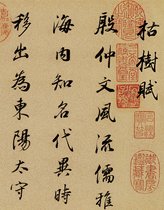 枯樹賦
殷仲文風流儒雅
海內知名代異時
移出為東陽太守